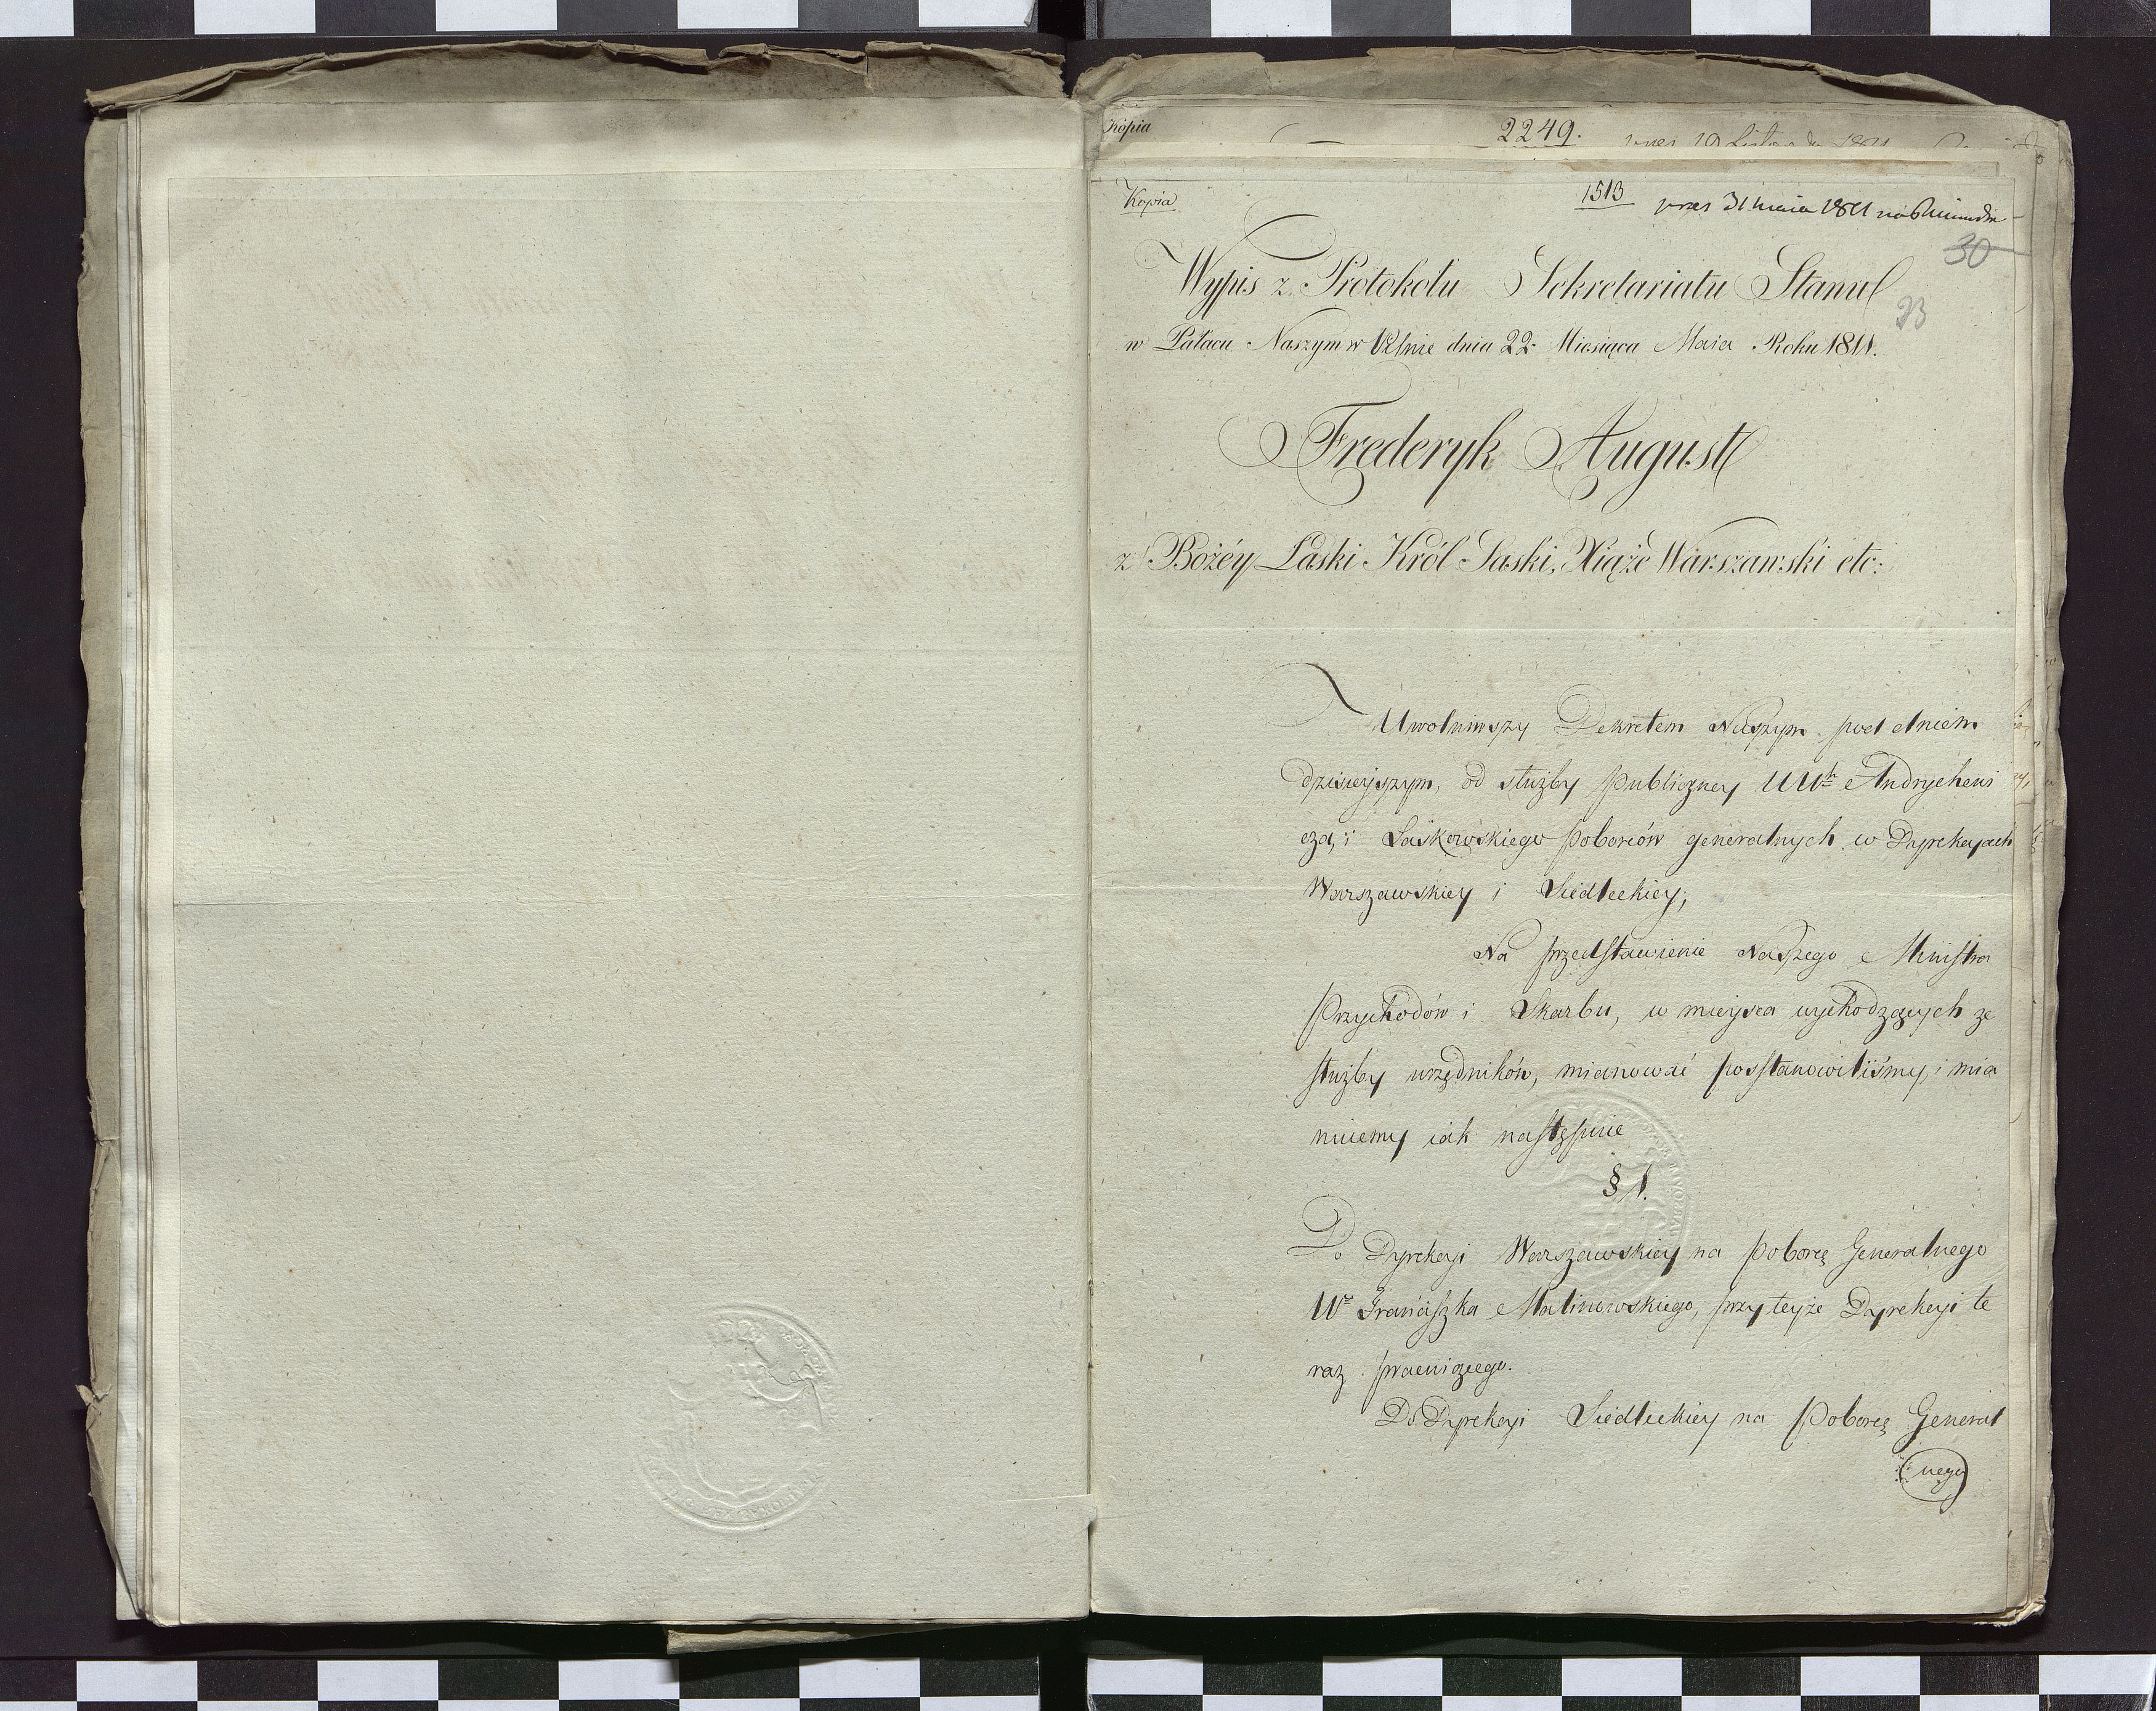 Kopia
2249.
Kopia
1513 pres 31 maia 1811
30
23
Wypis z Protokołu Sekretariatu Stanu
w Pałacu Naszym w Pilnie dnia 22. Miesiąca Maia Roku 1811.
Frederyk August
z Bożéy Łaski Król Saski, Xiążę Warszawski etc:
Uwolniwszy Dekretem Naszym pod dniem
dzisieyszym, od służby publiczney UUr Andrychewi
cza, i Laskowskiego poborców generalnych w Dyrekcyach
Warszawskiey i Siedleckiey;
Na przedstawienie Naszego Ministra
Przychodów i Skarbu, w mieysca wychodzących ze
służby urzędników, mianować postanowiliśmy, i mia
nuiemy iak następuie
§ 1.
Do Dyrekcyi Warszawskiey na poborcę Generalnego
Ur Franciszka Malinowskiego, przy teyże Dyrekcyi te
raz pracuiącego.
Do Dyrekcyi Siedleckiey na Poborcę General
nego